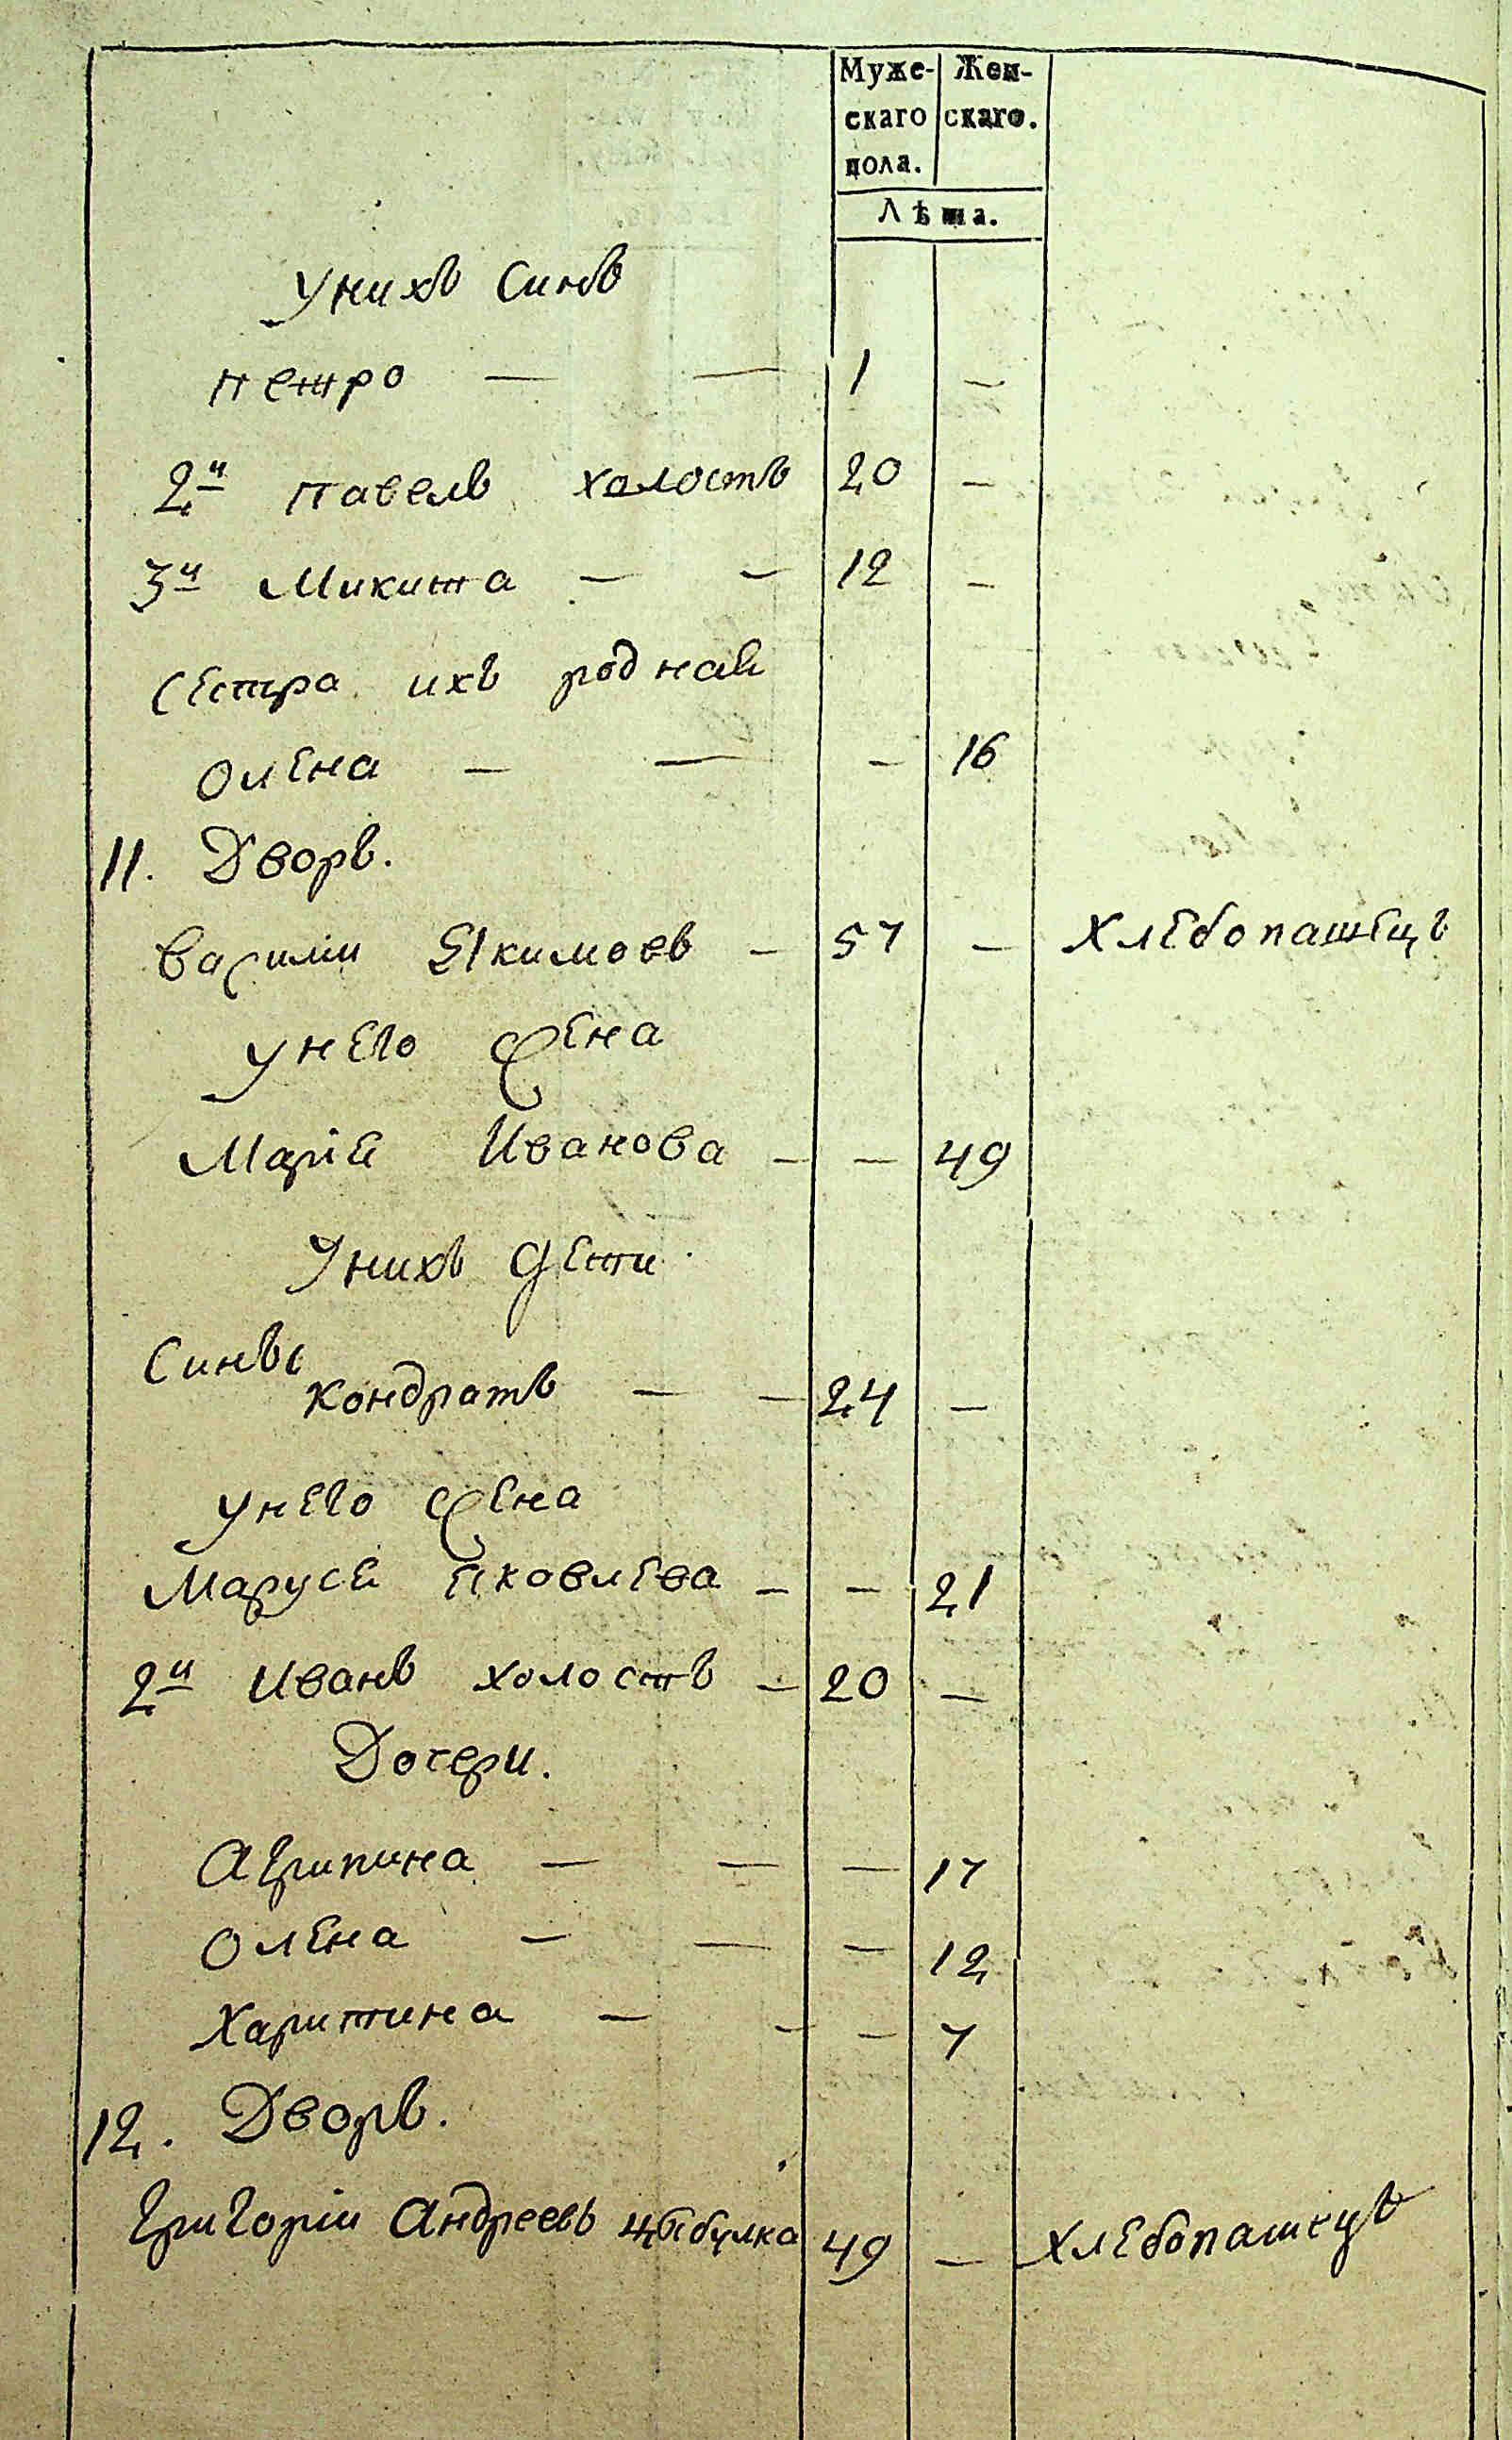 Муже- Жен-
скаго скаго.
пола.
Лѣта.
У нихъ Синъ
петро — — 1 —
2й павелъ холостъ 20 —
3й Микита — — 12 —
Сестра ихъ родная
Олена — — — 16
11. Дворъ.
Василіи Якимовъ — 57 — Хлебопашецъ
У него жена
Марія Иванова — — 49
У нихъ дети
Сины
Кондратъ — — 24 —
У него жена
Маруся Яковлева — — 21
2й Иванъ холостъ — 20 —
Дочери.
Агрипина — — — 17
Олена — — — 12
Харитина — — — 7
12. Дворъ.
Григоріи Андреевъ Цыбулка 49 — Хлебопашецъ